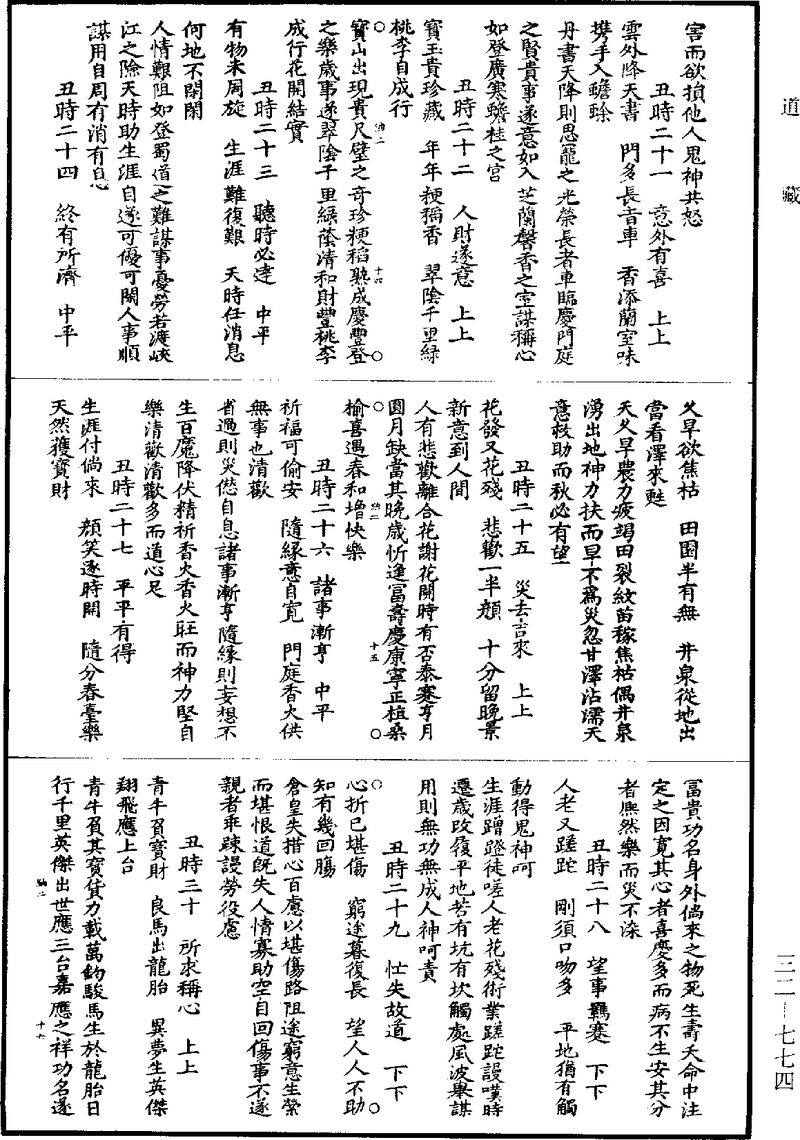 道藏
害而欲損他人鬼神共怒
丑時二十一　意外有喜　上上
雲外降天書　門多長者車　香添蘭室味
携手入蟾蜍
丹書天降則恩寵之光榮長者車臨慶門庭
之賢貴事遂意如入芝蘭馨香之室謀稱心
如登廣寒蟾桂之宮
丑時二十二　人財遂意　上上
寶玉貴珍藏　年年粳稻香　翠陰千里綠
桃李自成行
寶山出現貴尺璧之奇珍粳稻熟成慶豐登
之樂歲事遂翠陰千里綠蔭清和財豐桃李
成行花開結實
丑時二十三　聽時必達　中平
有物未周旋　生涯難復艱　天時任消息
何地不閑閑
人情艱阻如登蜀道之難謀事憂勞若渡峽
江之險天時助生涯自遂可優可閑人事順
謀用自周有消有息
丑時二十四　終有所濟　中平
久旱欲焦枯　田園半有無　井泉從地出
當看澤來甦
天久旱農力疲竭田裂紋苗稼焦枯偶井泉
湧出地神力扶而旱不爲災忽甘澤沾濡天
意救助而秋必有望
丑時二十五　災去吉來　上上
花發又花殘　悲歡一半顏　十分留晚景
新意到人間
人有悲歡離合花謝花開時有否泰蹇亨月
圓月缺當其晚歲忻逢富壽慶康寧正植桑
榆喜遇春和增快樂
丑時二十六　諸事漸亨　中平
祈福可偷安　隨緣意自寬　門庭香火供
無事也清歡
省過則災愆自息諸事漸亨隨緣則妄想不
生百魔降伏精祈香火香火旺而神力堅自
樂清歡清歡多而道心足
丑時二十七　平平有得
生涯付倘來　顏笑逐時開　隨分春臺樂
天然獲寶財
富貴功名身外倘來之物死生壽夭命中注
定之因寬其心者喜慶多而病不生安其分
者熈然樂而災不染
丑時二十八　望事羈蹇　下下
人老又蹉跎　剛須口吻多　平地猶有觸
動得鬼神呵
生涯蹭蹬徒嗟人老花殘術業蹉跎謾嘆時
遷歲改履平地若有坑有坎觸處風波舉謀
用則無功無成人神呵責
丑時二十九　忙失故道　下下
心折已堪傷　窮途暮復長　望人人不助
知有幾回腸
倉皇失措心百慮以堪傷路阻途窮意生縈
而堪恨道旣失人情寡助空自回傷事不遂
親者乖疎謾勞役慮
丑時三十　所求稱心　上上
青牛負寶財　良馬出龍胎　異夢生英傑
翔飛應上台
青牛負其寶貨力載萬鈞駿馬生於龍胎日
行千里英傑出世應三台嘉應之祥功名遂
三二—七七四